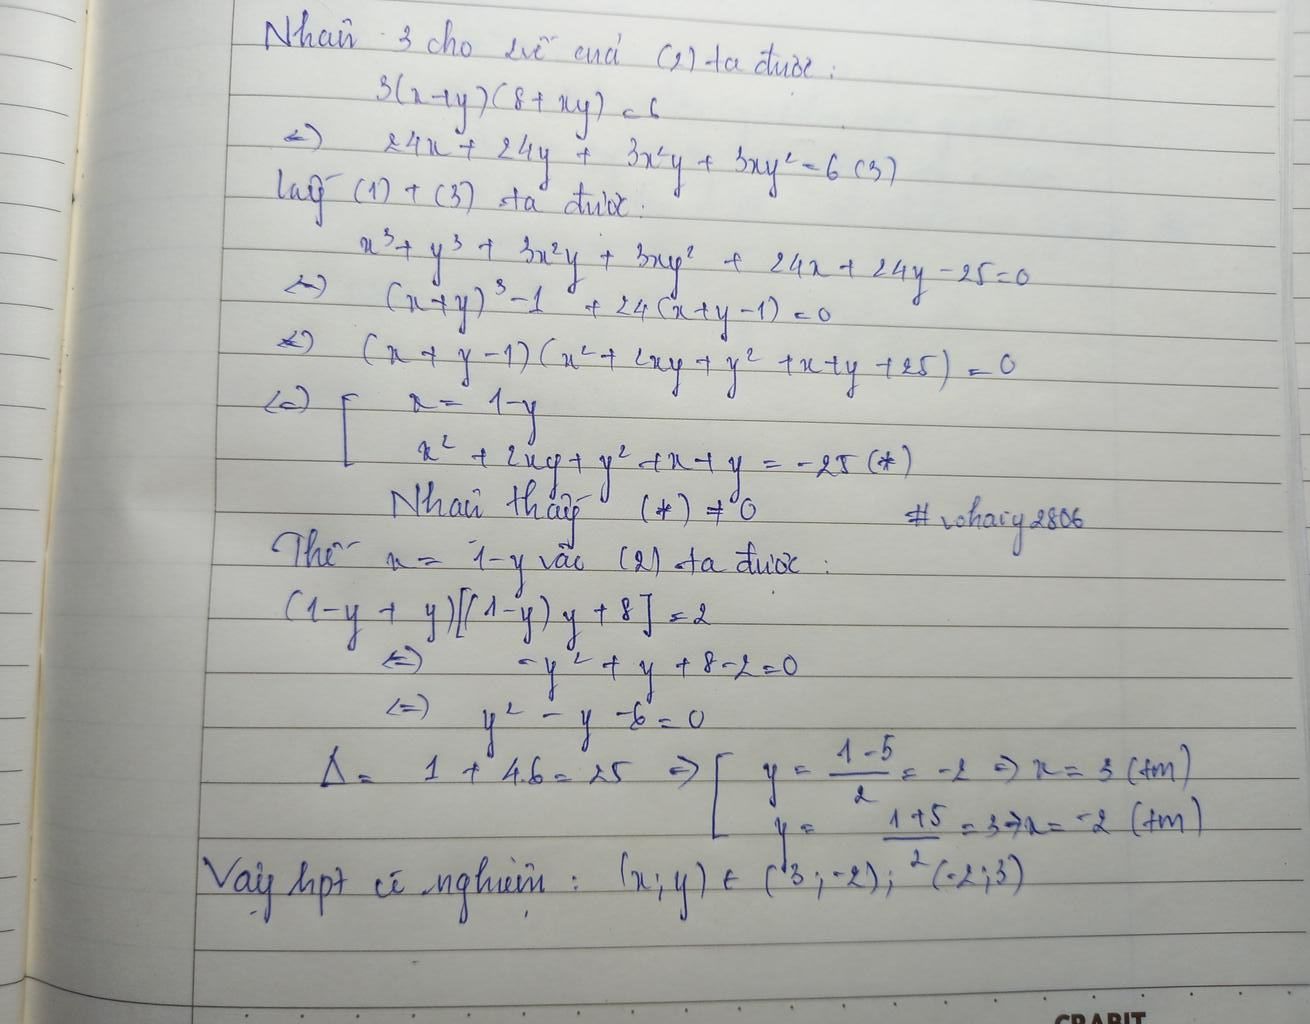 Nhân 3 cho 2 vế của (2) ta được:
3(x+y)(8+xy)=6
<=> 24x + 24y + 3x²y + 3xy² = 6 (3)
lấy (1) + (3) ta được:
x³ + y³ + 3x²y + 3xy² + 24x + 24y - 25 = 0
<=> (x+y)³ - 1 + 24(x+y-1) = 0
<=> (x + y - 1)(x² + 2xy + y² + x + y + 25) = 0
<=> [ x = 1-y
x² + 2xy + y² + x + y = -25 (*)
Nhận thấy (*) ≠ 0 #vohaiy2806
Thế x = 1-y vào (2) ta được:
(1-y + y)[(1-y)y + 8] = 2
<=> -y² + y + 8 - 2 = 0
<=> y² - y - 6 = 0
Δ = 1 + 4.6 = 25 => [ y = (1-5)/2 = -2 => x = 3 (tm)
y = (1+5)/2 = 3 => x = -2 (tm)
Vậy hpt có nghiệm: (x;y) ∈ (3;-2); (-2;3)